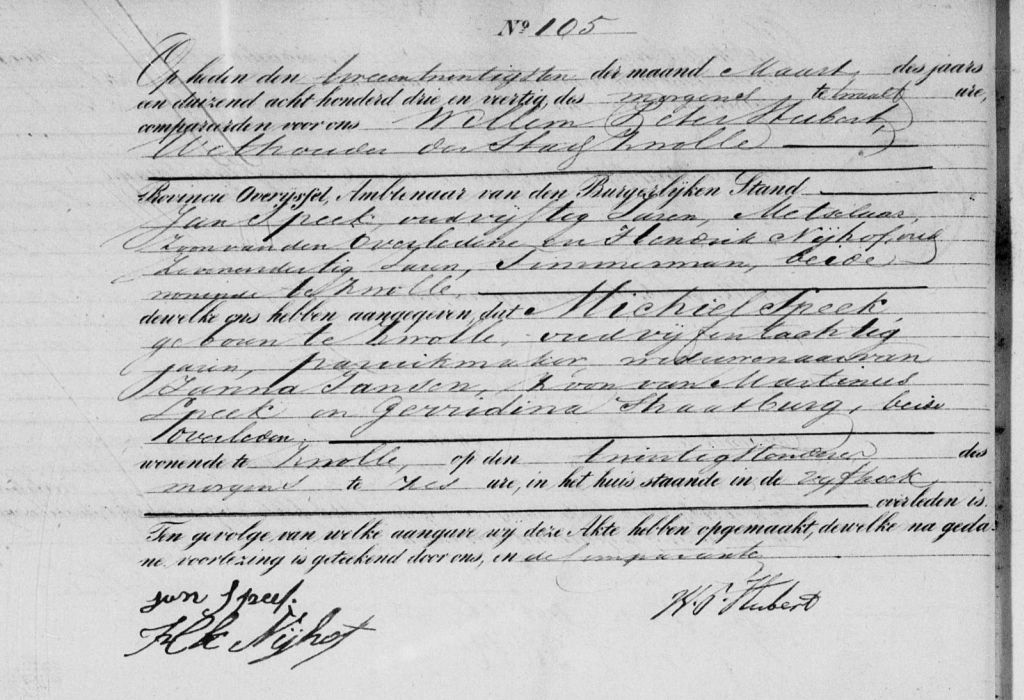 Nº 105
Op heden den tweeentwintigsten der maand Maart, des jaars
een duizend acht honderd drie en veertig, des morgens te twaalf ure,
compareerden voor ons Willem Peter Hubert,
Wethouder der Stad Zwolle
Provincie Overijssel, Ambtenaar van den Burgerlijken Stand
Jan Speek, oud vijftig Jaren, Metselaar,
Zoon van den Overledene en Hendrik Nijhof, oud
Zevenendertig Jaren, Timmerman, beide
wonende te Zwolle,
dewelke ons hebben aangegeven, dat Michiel Speek
geboren te Zwolle, oud vijf en tachtig
jaren, paruikmaker, weduwenaar van
Janna Jansen, Zoon van Martinus
Speek en Gerridina Straatburg, beide
overleden,
wonende te Zwolle, op den twintigsten dezer des
morgens te zes ure, in het huis staande in de vijfhoek,
overleden is.
Ten gevolge van welke aangave wij deze Akte hebben opgemaakt, dewelke na geda-
ne voorlezing is geteekend door ons, en de Comparanten
Jan Speek.
W. P. Hubert
Hk Nijhof